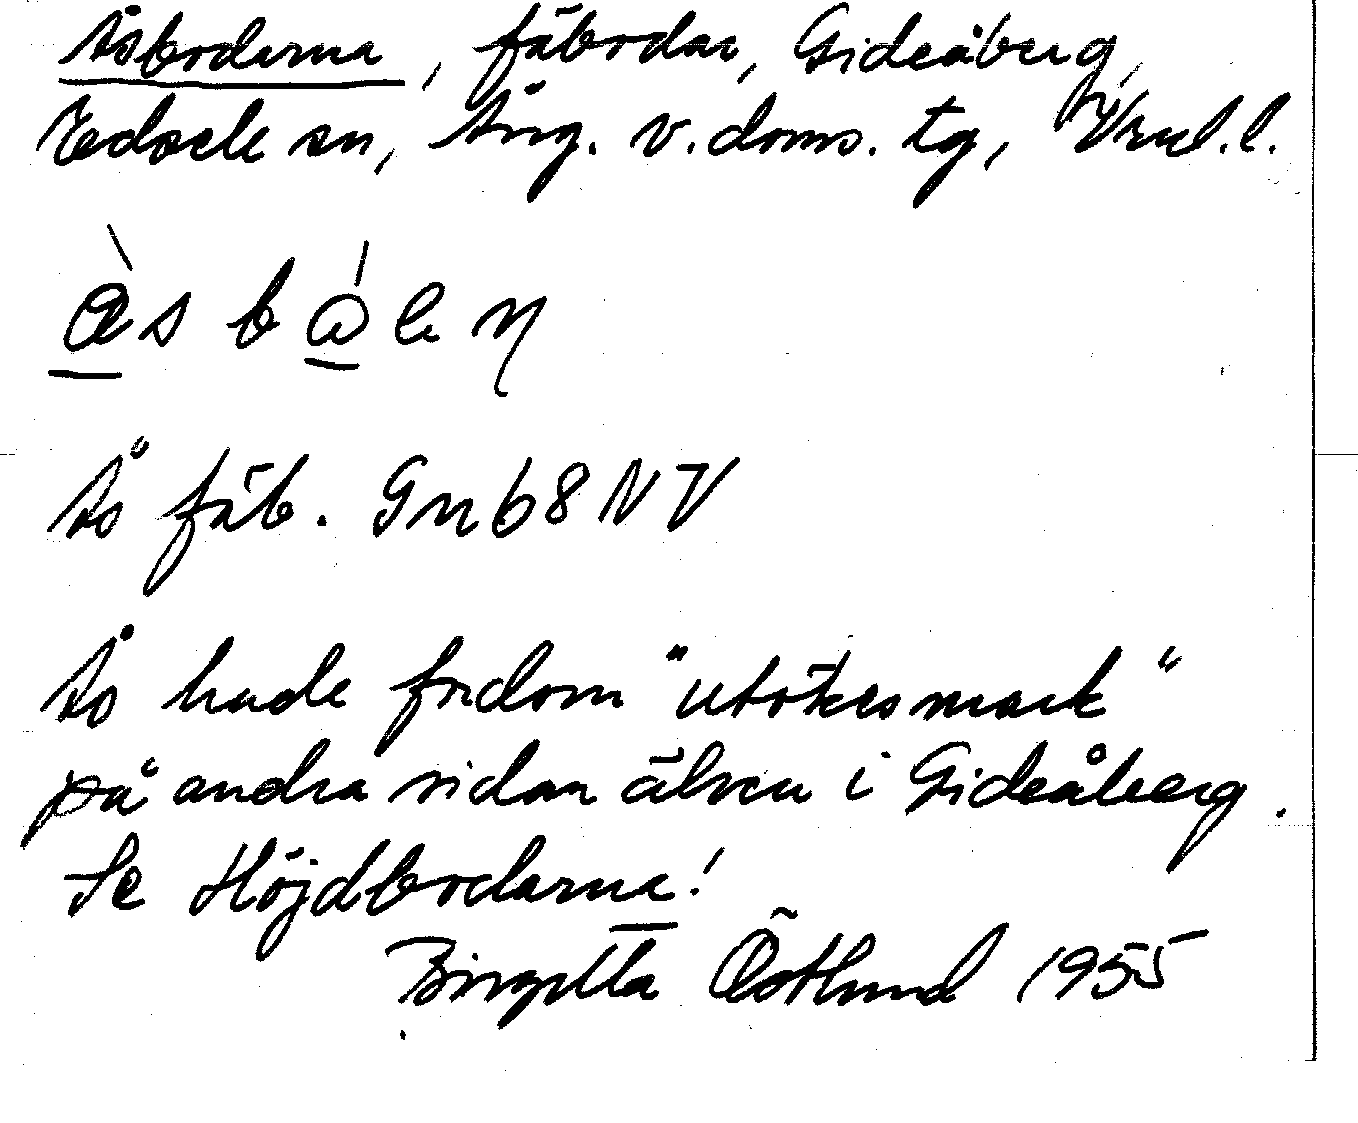 Åsboderna, fäbodar, Gideåberg,
Edsele sn, Ång. v. doms. tg, Vnl. l.
Ås fäb. Gn 68 NV
Ås hade fordom "utökesmark"
på andra sidan älven i Gideåberg.
Se Höjdbodarna!
Birgitta Östlund 1955